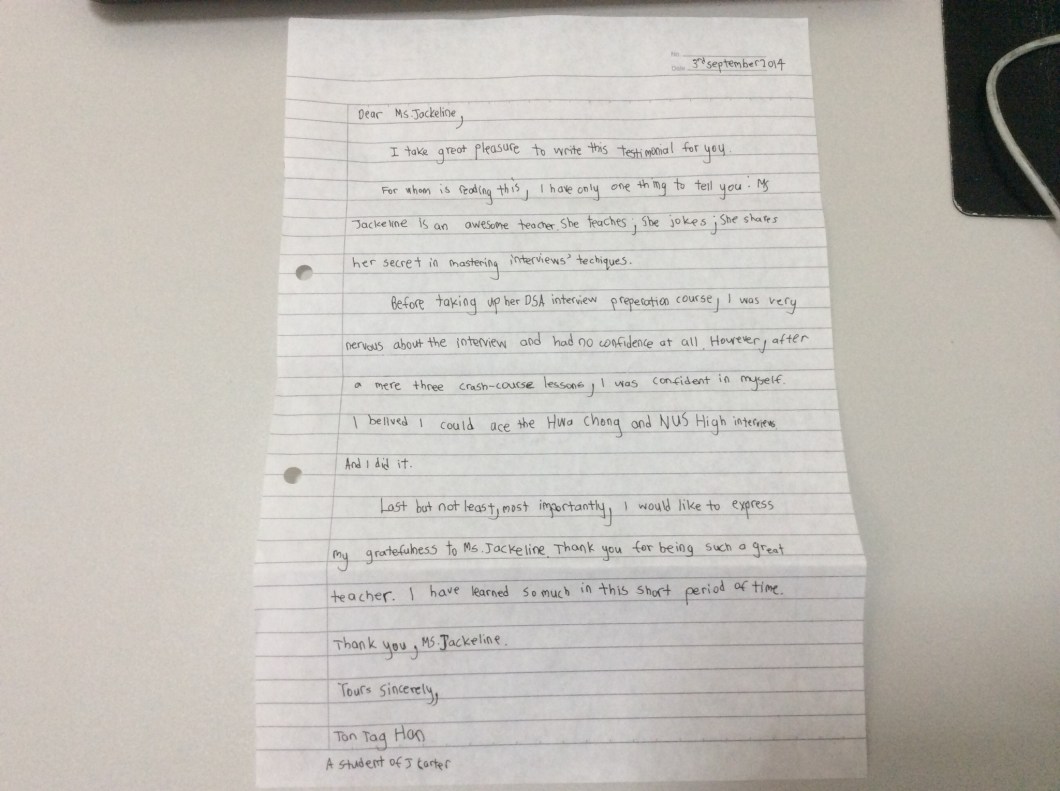 No.
Date 3rd september 2014
Dear Ms. Jackeline,
I take great pleasure to write this testimonial for you.
For whom is reading this, I have only one thing to tell you: Ms
Jackeline is an awesome teacher. She teaches; She jokes; She shares
her secret in mastering interviews' techiques.
Before taking up her DSA interview preperation course, I was very
nervous about the interview and had no confidence at all. However, after
a mere three crash-course lessons, I was confident in myself.
I belived I could ace the Hwa Chong and NUS High interviews.
And I did it.
Last but not least, most importantly, I would like to express
my gratefulness to Ms. Jackeline. Thank you for being such a great
teacher. I have learned so much in this short period of time.
Thank you, Ms. Jackeline.
Yours sincerely,
Tan Tag Han
A student of J Carter